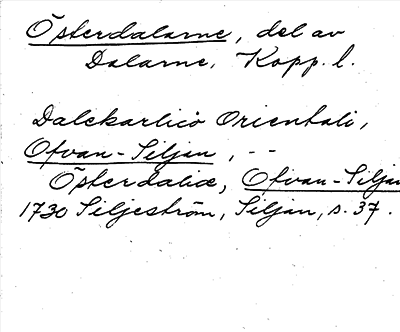 Österdalarne, del av
Dalarne, Kopp. l.
Dalekarlicô Orientali,
Ofvan-Siljan, --
Österdaliæ, Ofvan-Siljan
1730 Siljeström, Siljan, s. 37.